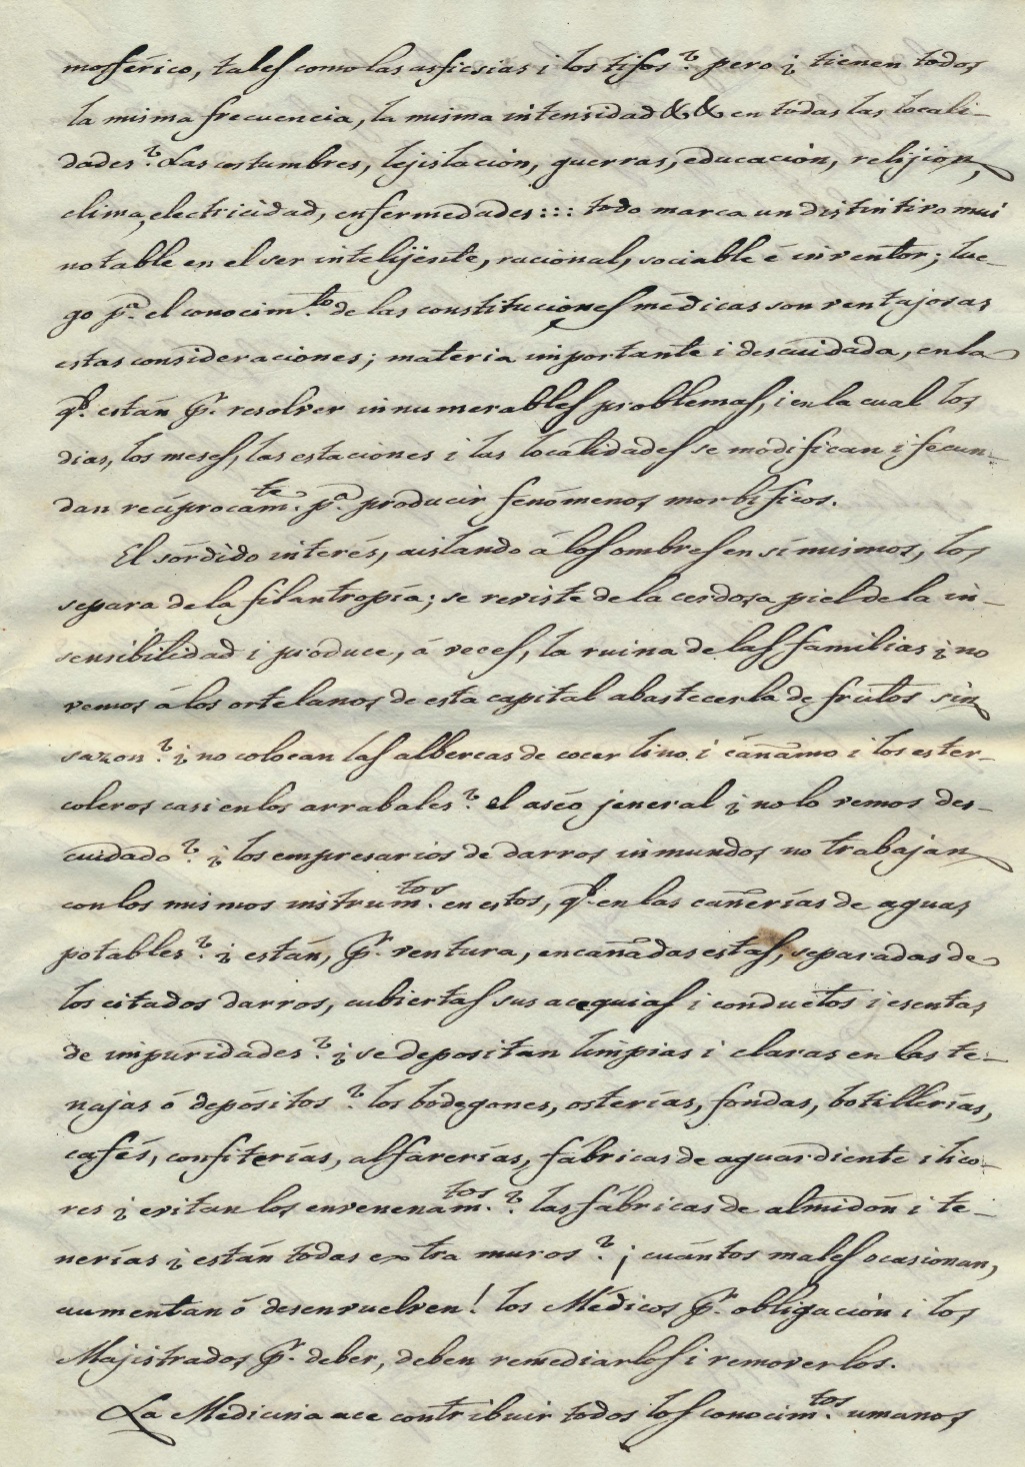 mosférico, tales como las asficsias i los tifos? pero ¿ tienen todos
la misma frecuencia, la misma intensidad & & en todas las locali-
dades? Las costumbres, lejislación, guerras, educación, relijion,
clima, electricidad, enfermedades::: todo marca un distintivo mui
notable en el ser intelijente, racional, sociable é inventor; lue-
go pª. el conocim.to de las constituciones médicas son ventajosas
estas consideraciones; materia importante i descuidada, en la
q.e están p.r resolver innumerables problemas, i en la cual los
dias, los meses, las estaciones i las localidades se modifican i fecun-
dan recíprocam.te pª. producir fenómenos morbíficos.
El sórdido interés, aislando á los ombres en sí mismos, los
separa de la filantropía; se reviste de la cerdosa piel de la in-
sensibilidad i produce, á veces, la ruina de las familias ¿ no
vemos á los ortelanos de esta capital abastecerla de frutos sin
sazon? ¿ no colocan las albercas de cocer lino i cáñamo i los ester-
coleros casi en los arrabales? el aséo jeneral ¿ no lo vemos des-
cuidado? ¿ los empresarios de darros inmundos no trabajan
con los mismos instrum.tos en estos, q.e en las cañerías de aguas
potables? ¿ están, p.r ventura, encañadas estas, separadas de
los citados darros, cubiertas sus acequias i conductos i esentas
de impuridades? ¿ se depositan limpias i claras en las te-
najas ó depósitos? los bodegones, osterías, fondas, botillerías,
cafés, confiterías, alfarerías, fábricas de aguardiente i lico-
res ¿ evitan los envenenam.tos? las fábricas de almidón i te-
nerías ¿ están todas extra muros? ¡ cuántos males ocasionan,
aumentan ó desenvuelven! los Médicos p.r obligación i los
Majistrados p.r deber, deben remediarlos i removerlos.
La Medicina ace contribuir todos los conocim.tos umanos